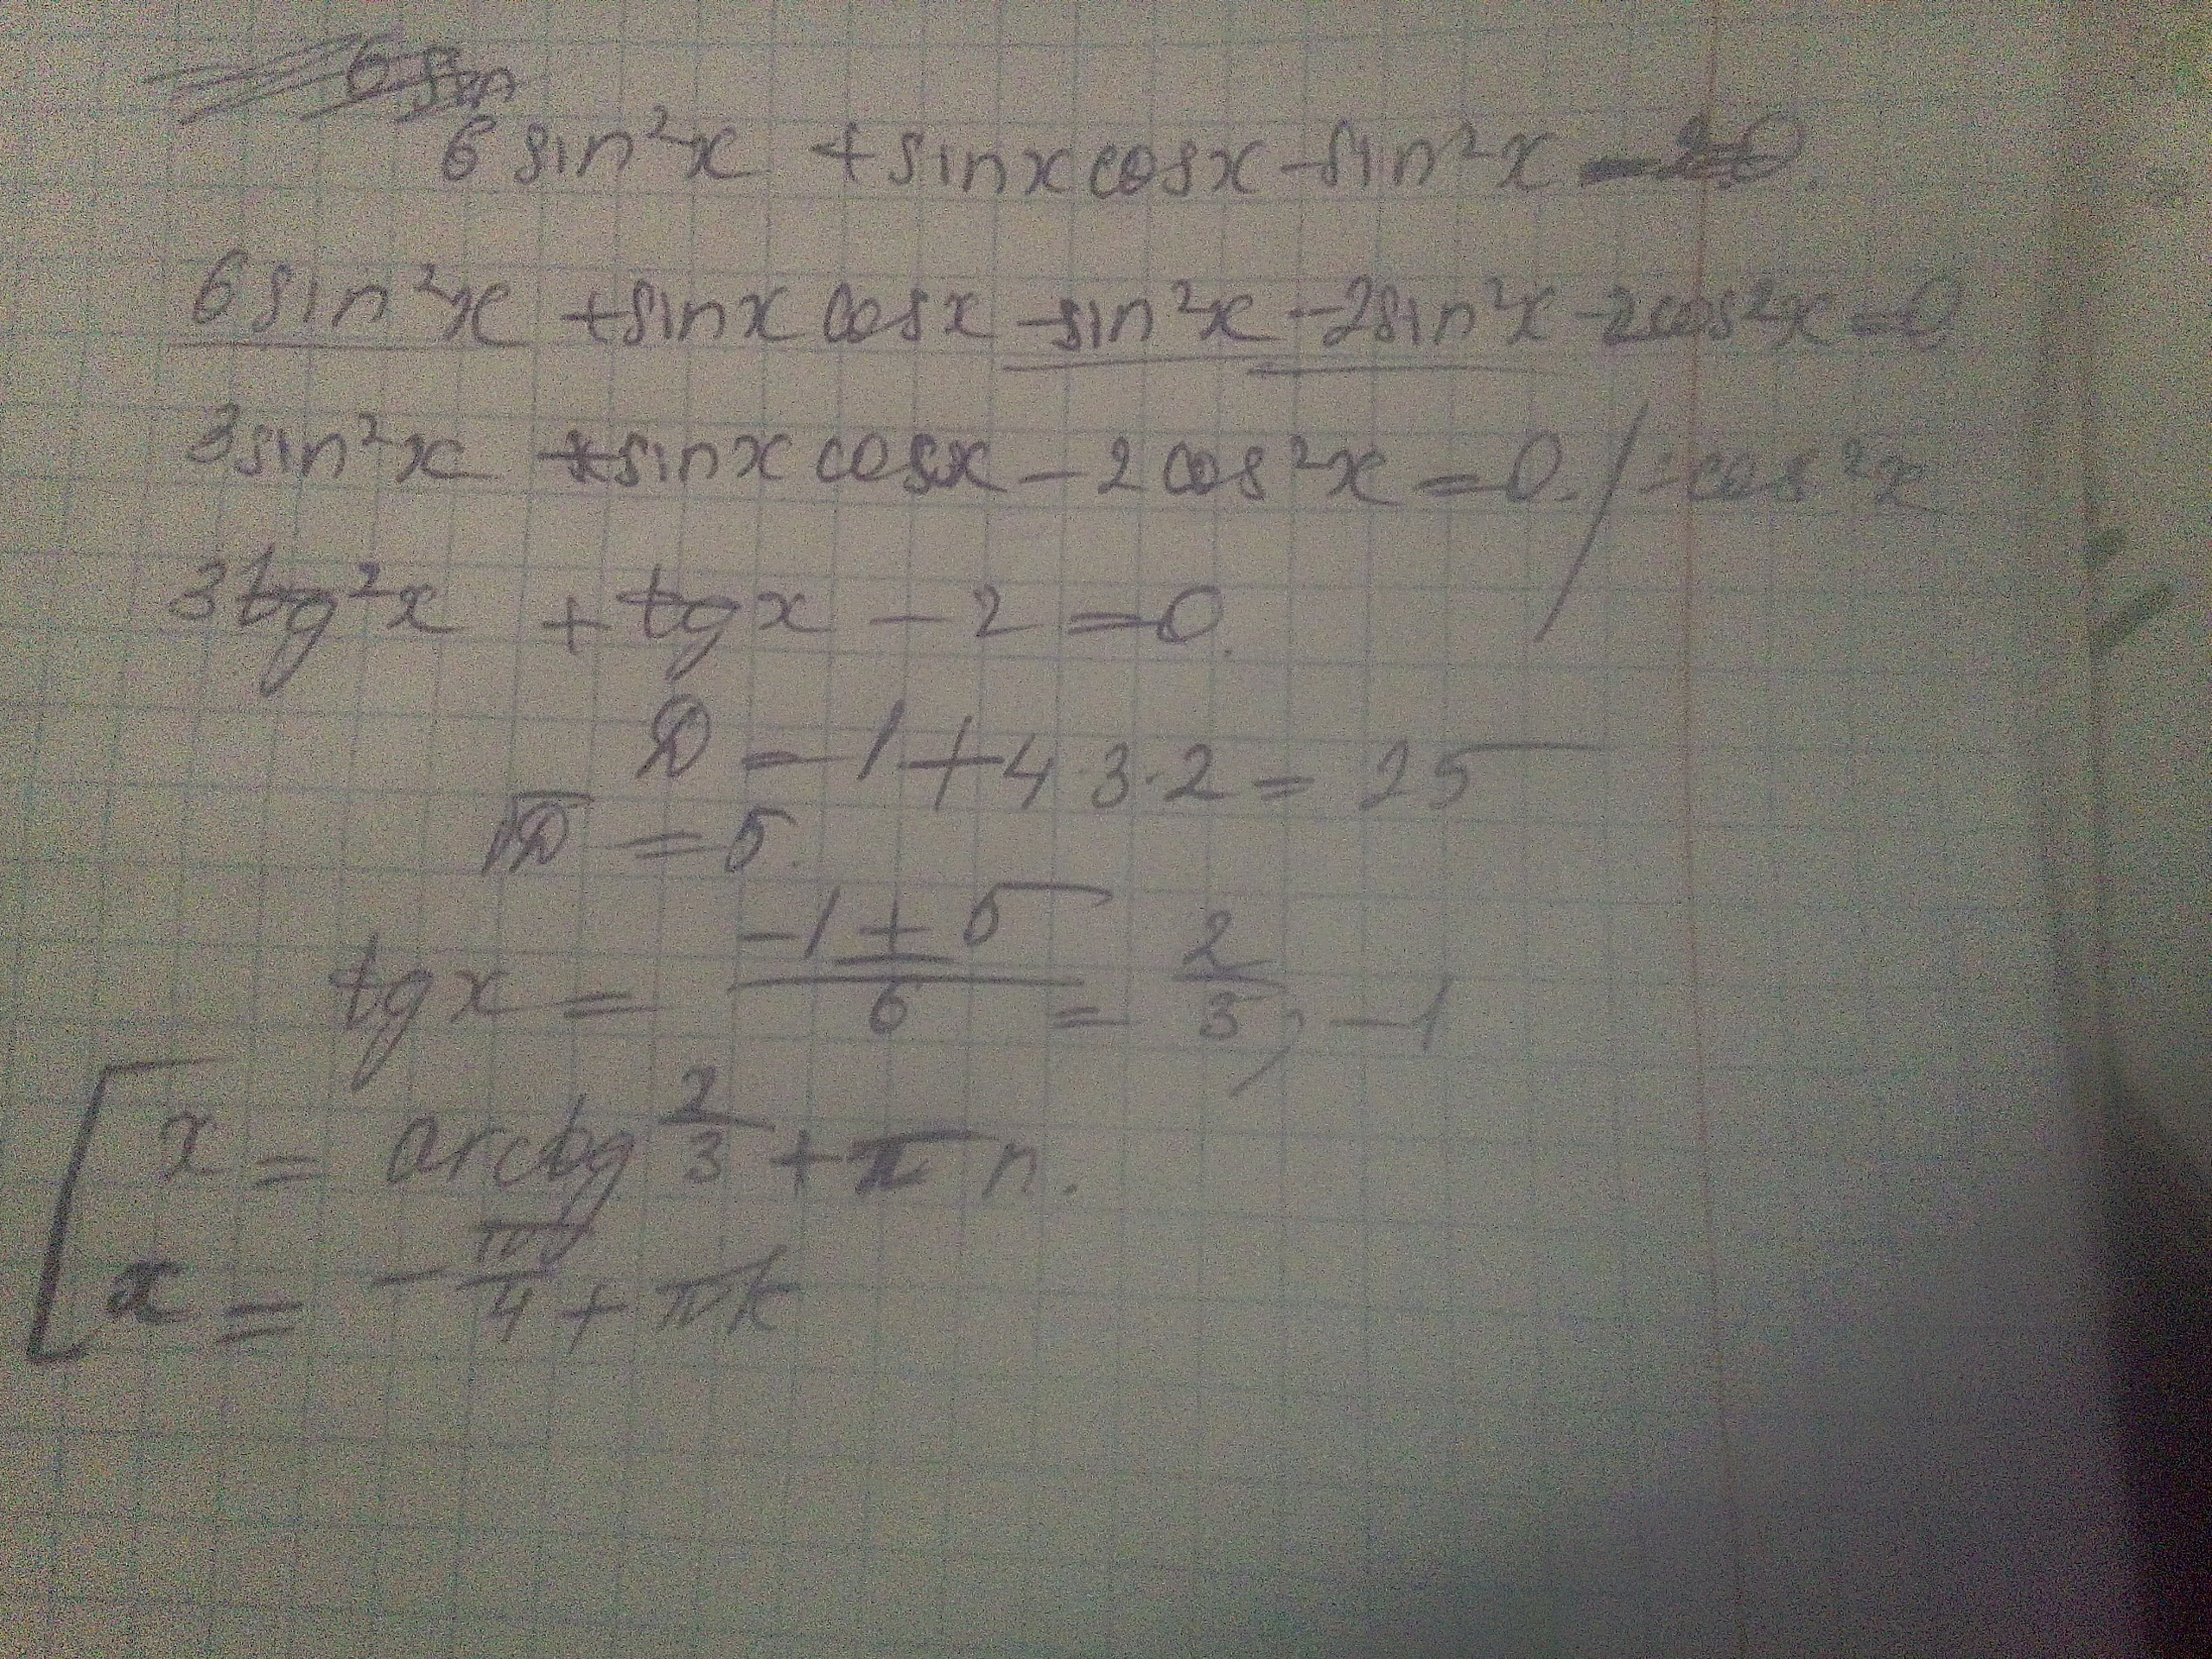 6 sin
6 sin²x + sinx cosx - sin²x - 2=0.
6 sin²x + sinx cosx - sin²x - 2sin²x - 2cos²x = 0
3sin²x + sinx cosx - 2 cos²x = 0. / :cos²x
3tg²x + tgx - 2 = 0.
D = 1 + 4·3·2 = 25
√D = 5.
tgx = (-1 ± 5)/6 = 2/3, -1
[ x = arctg 2/3 + πn.
x = -π/4 + πk